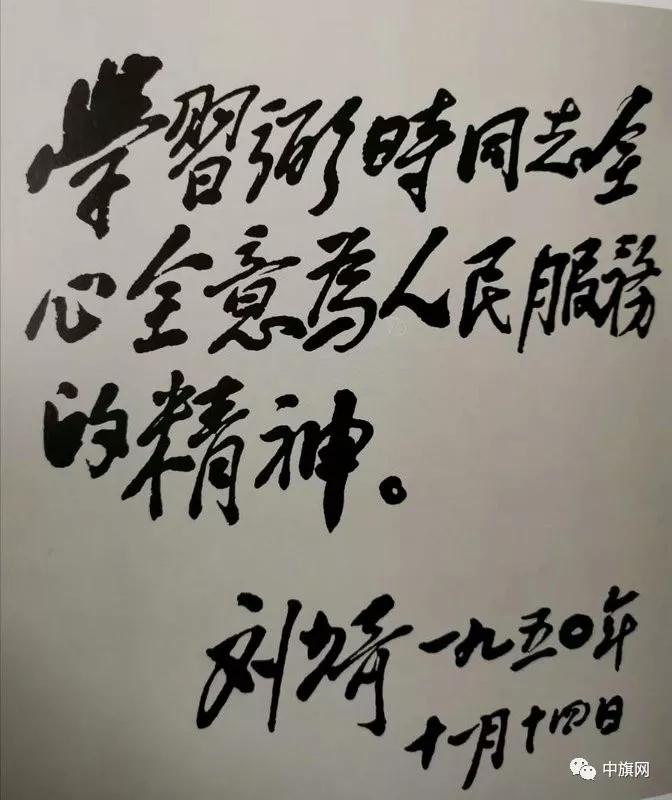 學習弼時同志全
心全意為人民服務
的精神。
刘少奇 一九五〇年
十一月十四日
中旗网